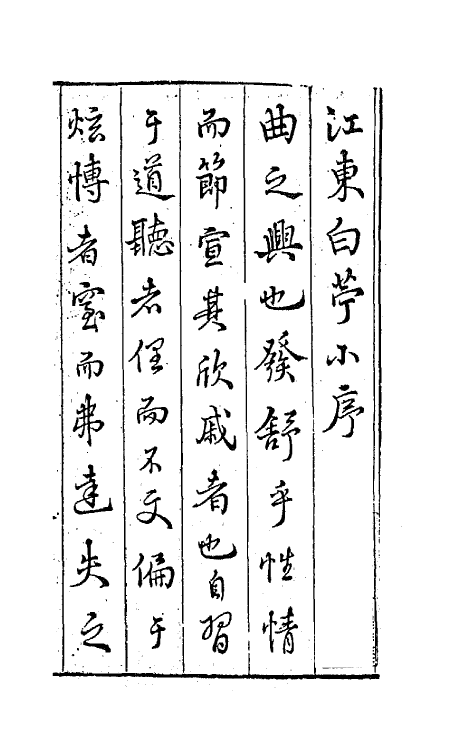 江東白苧小序
曲之興也發舒乎性情
而節宣其欣戚者也自習
于道聽者俚而不文偏于
炫博者窒而弗達失之